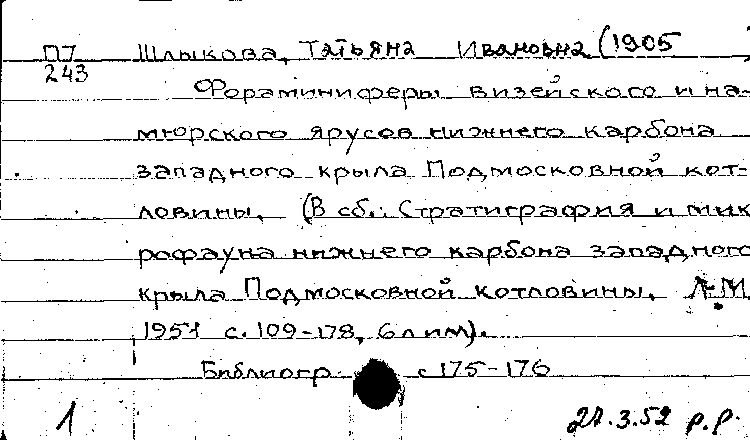 П7 Шлыкова, Татьяна Ивановна (1905
243
Фораминиферы визейского и на-
мюрского ярусов нижнего карбона
западного крыла Подмосковной кот-
ловины. (В сб.: Стратиграфия и мик
рофауна нижнего карбона западного
крыла Подмосковной котловины. Л-М.
1951 с. 109-178, 6 л им).
Библиогр. с 175-176
1 21.3.52 р.р.